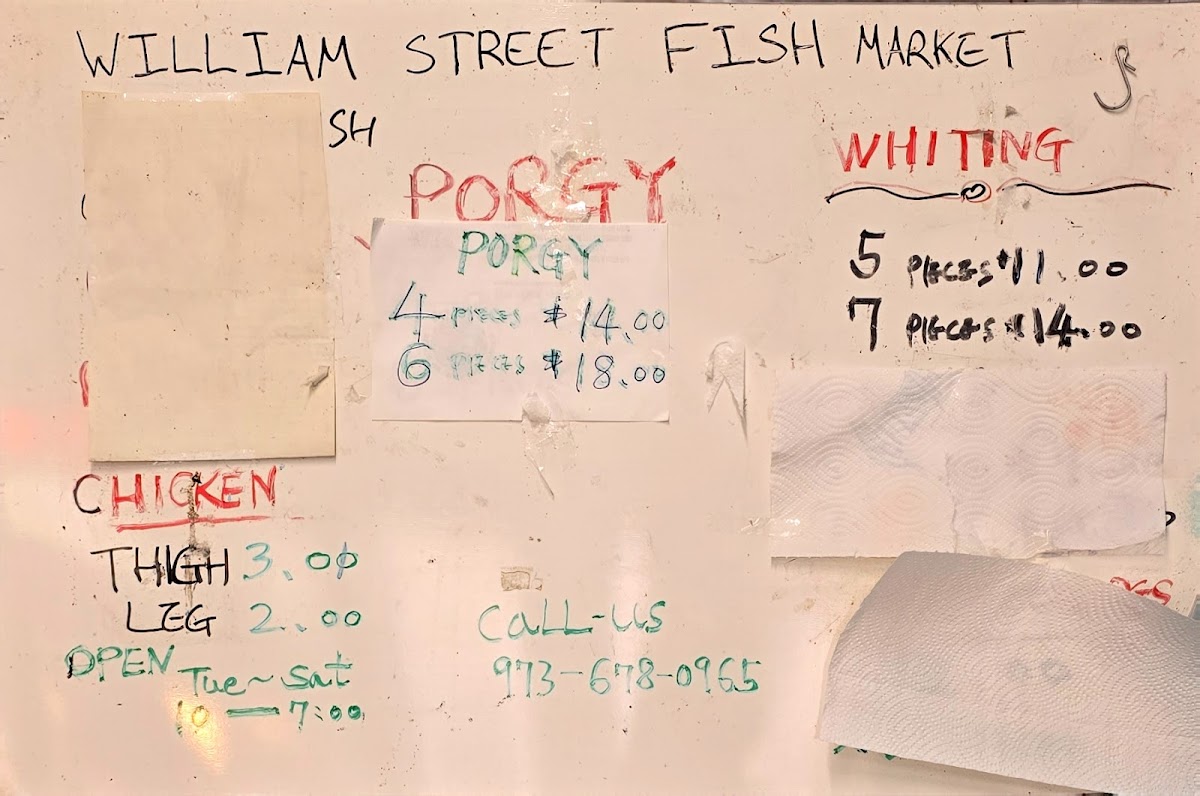 WILLIAM STREET FISH MARKET
SH
PORGY
PORGY
4 PIECES $14.00
6 PIECES $18.00
WHITING
5 PIECES $11.00
7 PIECES $14.00
CHICKEN
THIGH 3.00
LEG 2.00
OPEN Tue~Sat
10 — 7:00
CALL-US
973-678-0965
GS